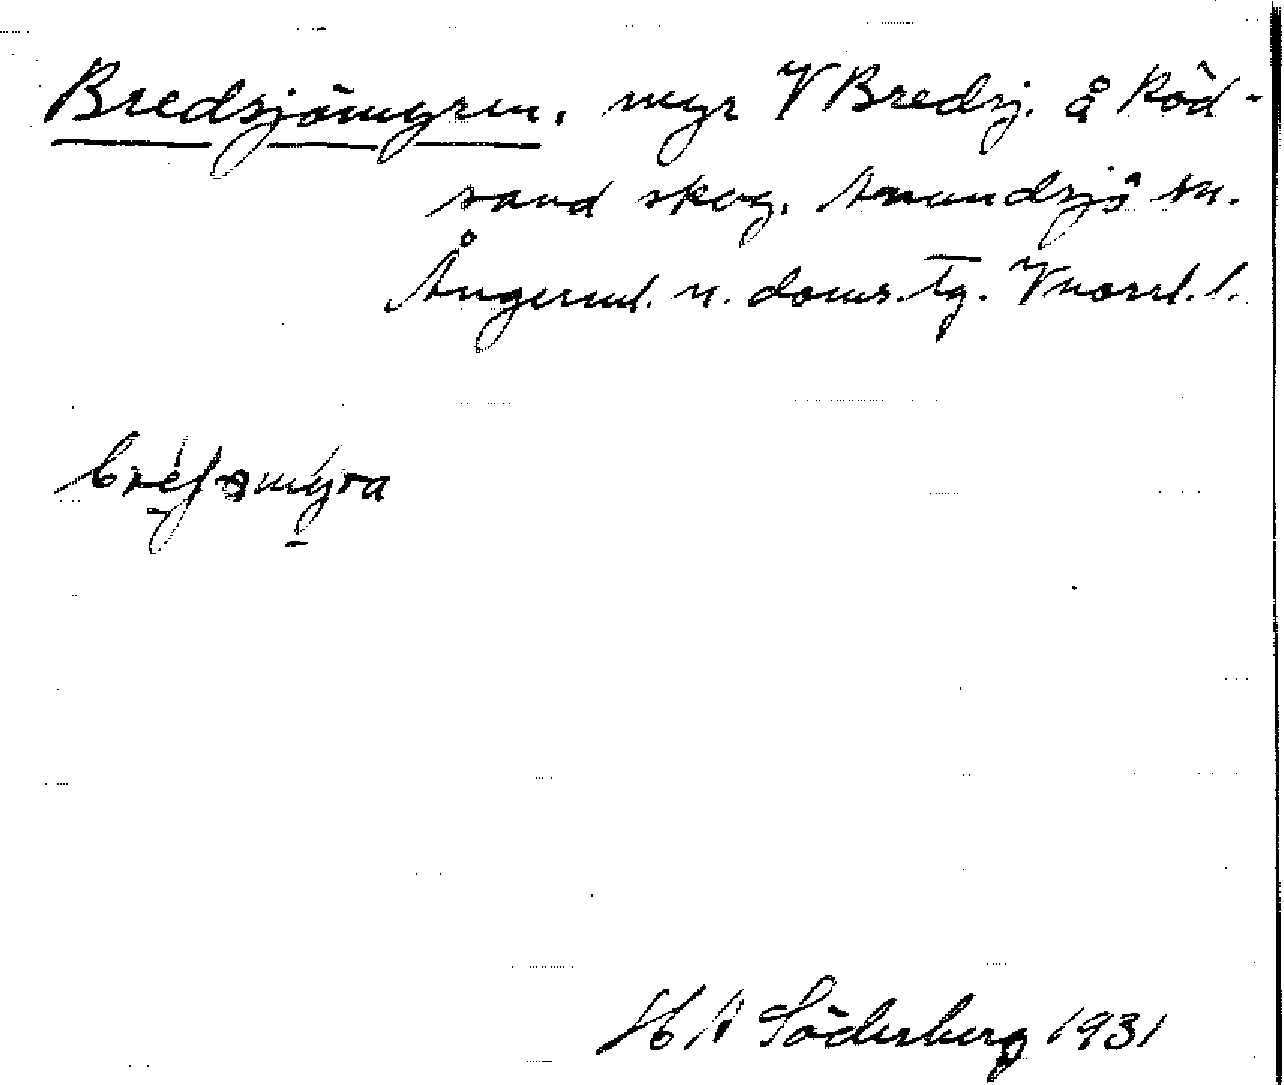 Bredsjömyren, myr V Bredsj. å Röd-
sand skog, Anundsjö sn.
Ångerml. n. doms. tg. Vnorrl. l.
H A Söderberg 1931